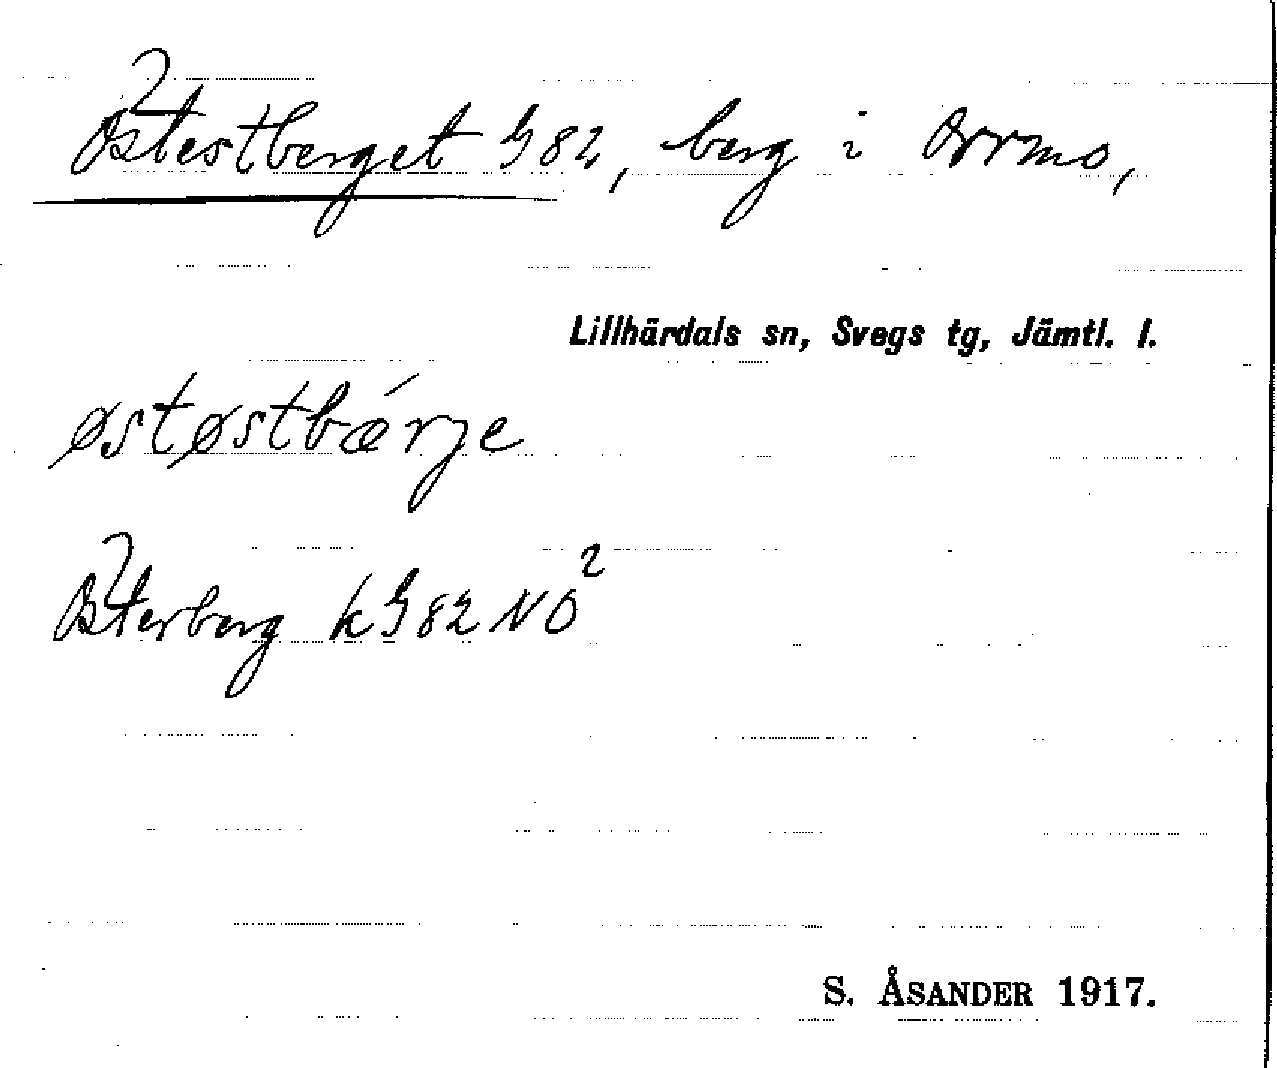 Östestberget G82, berg i Orrmo,
Lillhärdals sn, Svegs tg, Jämtl. l.
østøstbǽrje
Österberg kG82NO²
S. ÅSANDER 1917.